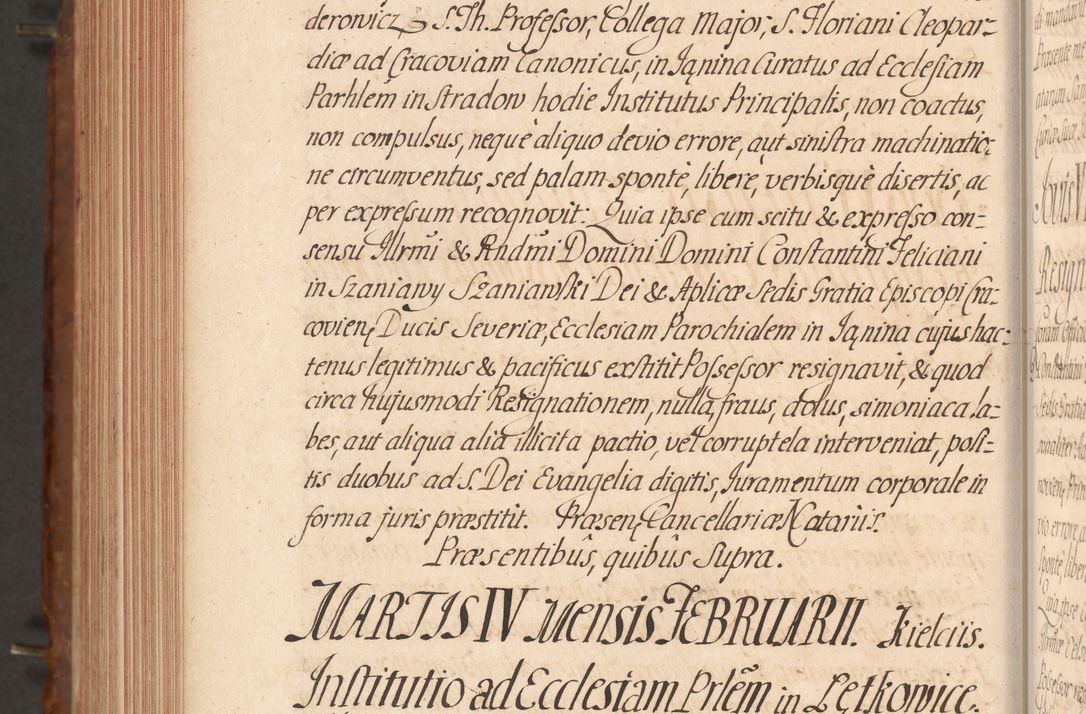 derowicz, S. Th. Professor, Collega Major, S. Floriani Cleopar=
diæ ad Cracoviam Canonicus, in Janina Curatus ad Ecclesiam
Parhlem in Stradow hodie Institutus Principalis, non coactus,
non compulsus, nequè aliquo devio errore, aut sinistra machinatio=
ne circumventus, sed palam spontè, liberè, verbisquè disertis, ac
per expressum recognovit: Quia ipse cum scitu & expresso con=
sensu Illrmi & Rndmi Domini Domini Constantini Feliciani
in Szaniawy Szaniawski Dei & Aplicæ Sedis Gratia Episcopi Cra=
covien, Ducis Severiæ, Ecclesiam Parochialem in Janina cujus hac=
tenus legitimus & pacificus exstitit Possessor resignavit, & quod
circa hujusmodi Resignationem, nulla, fraus, dolus, simoniaca la=
bes, aut aliqua alia illicita pactio, vel corruptela interveniat, posi=
tis duobus ad S. Dei Evangelia digitis, Juramentum corporale in
forma juris præstitit. Præsen, Cancellariæ Notariis.
Præsentibûs, quibûs supra.
MARTIS IV MENSIS FEBRUARII. Kielciis.
Institutio ad Ecclesiam Prlem in Letkowice.